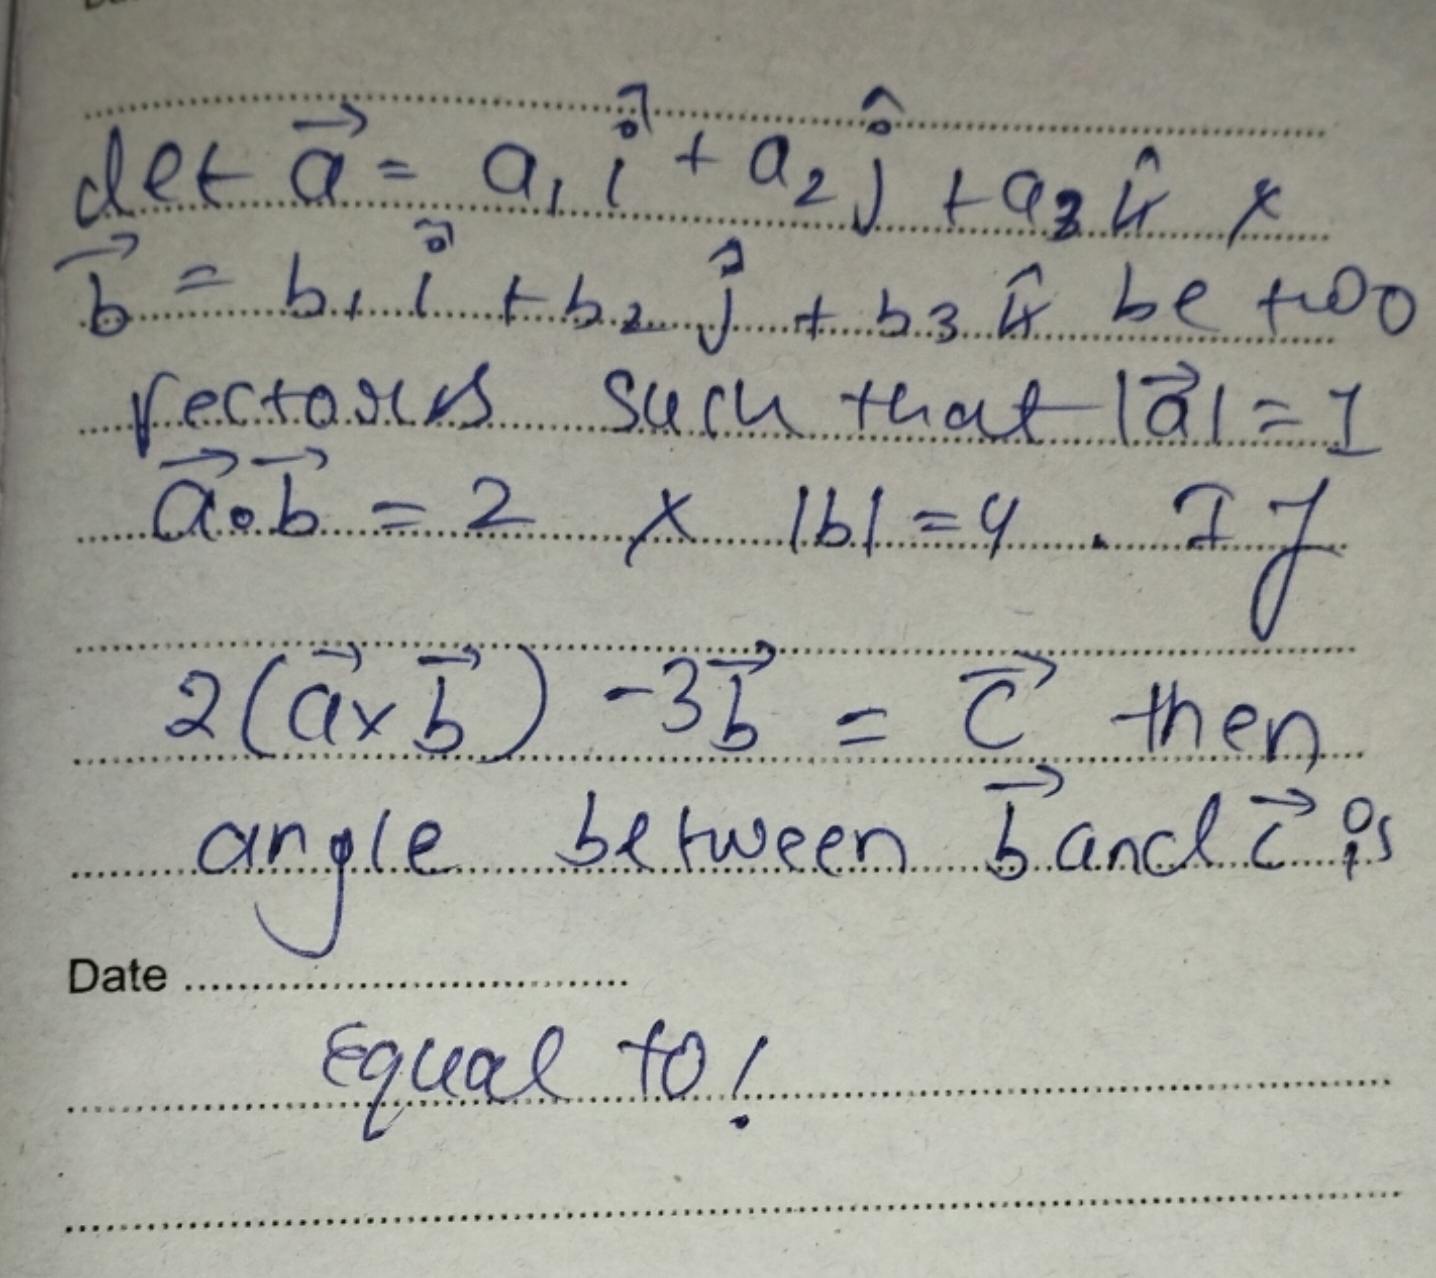 Let a⃗ = a₁ î + a₂ ĵ + a₃ k̂ &
b⃗ = b₁ î + b₂ ĵ + b₃ k̂ be two
vectors such that |a⃗| = 1
a⃗·b⃗ = 2 & |b| = 4 . If
2(a⃗×b⃗) -3b⃗ = c⃗ then
angle between b⃗ and c⃗ is
Date
Equal to!